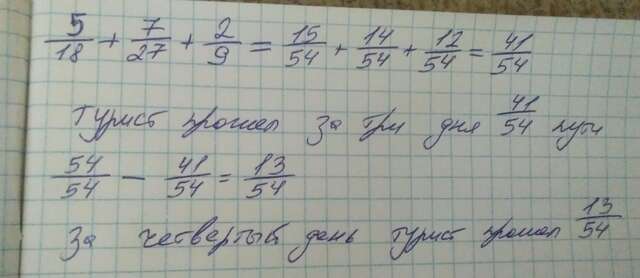 5/18 + 7/27 + 2/9 = 15/54 + 14/54 + 12/54 = 41/54
Турист прошел за три дня 41/54 пути
54/54 − 41/54 = 13/54
За четвертый день турист прошел 13/54